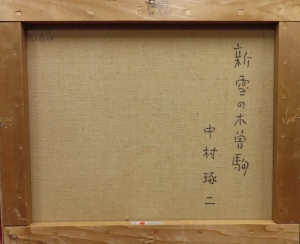 新雪の木曽駒
中村琢二